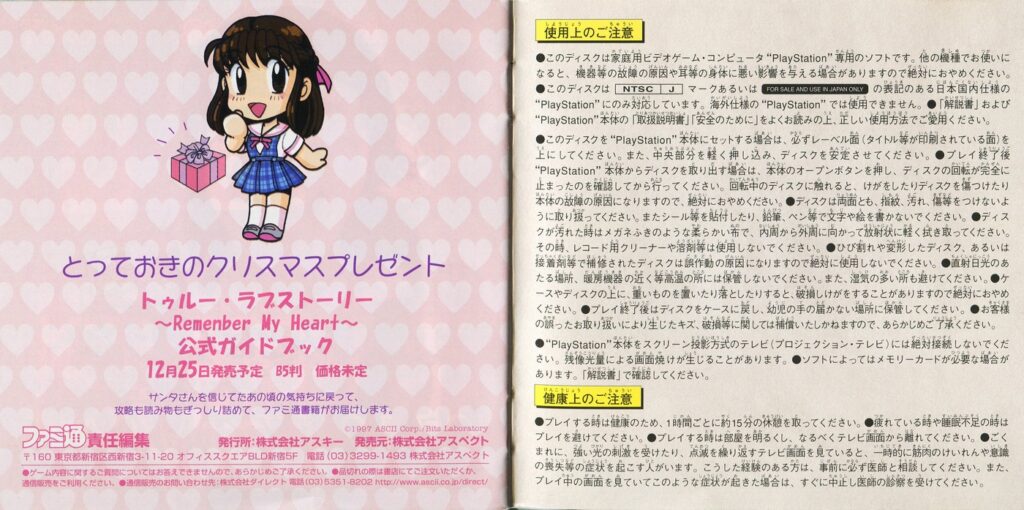 とっておきのクリスマスプレゼント
トゥルー・ラブストーリー
～Remenber My Heart～
公式ガイドブック
12月25日発売予定 B5判 価格未定
サンタさんを信じてたあの頃の気持ちに戻って、
攻略も読み物もぎっしり詰めて、ファミ通書籍がお届けします。
©1997 ASCII Corp./Bits Laboratory
ファミ通責任編集 発行所：株式会社アスキー 発売元：株式会社アスペクト
〒160 東京都新宿区西新宿3-11-20 オフィススクエアBLD新宿5F 電話(03)3299-1493 株式会社アスペクト
●ゲーム内容に関するご質問についてはお答えできませんので、あらかじめご了承ください。●品切れの際は書店にてご注文いただくか、
通信販売をご利用ください。●通信販売のお問い合せ先：株式会社ダイレクト 電話(03)5351-8202 http://www.ascii.co.jp/direct/
使用上のご注意
●このディスクは家庭用ビデオゲーム・コンピュータ“PlayStation”専用のソフトです。他の機種でお使いに
なると、機器等の故障の原因や耳等の身体に悪い影響を与える場合がありますので絶対におやめください。
●このディスクは NTSC J マークあるいは FOR SALE AND USE IN JAPAN ONLY の表記のある日本国内仕様の
“PlayStation”にのみ対応しています。海外仕様の“PlayStation”では使用できません。●「解説書」および
“PlayStation”本体の「取扱説明書」「安全のために」をよくお読みの上、正しい使用方法でご愛用ください。
●このディスクを“PlayStation”本体にセットする場合は、必ずレーベル面（タイトル等が印刷されている面）を
上にしてください。また、中央部分を軽く押し込み、ディスクを安定させてください。●プレイ終了後
“PlayStation”本体からディスクを取り出す場合は、本体のオープンボタンを押し、ディスクの回転が完全に
止まったのを確認してから行ってください。回転中のディスクに触れると、けがをしたりディスクを傷つけたり
本体の故障の原因になりますので、絶対におやめください。●ディスクは両面とも、指紋、汚れ、傷等をつけないよ
うに取り扱ってください。またシール等を貼付したり、鉛筆、ペン等で文字や絵を書かないでください。●ディス
クが汚れた時はメガネふきのような柔らかい布で、内周から外周に向かって放射状に軽く拭き取ってください。
その時、レコード用クリーナーや溶剤等は使用しないでください。●ひび割れや変形したディスク、あるいは
接着剤等で補修されたディスクは誤作動の原因になりますので絶対に使用しないでください。●直射日光のあ
たる場所、暖房機器の近く等高温の所には保管しないでください。また、湿気の多い所も避けてください。●ケ
ースやディスクの上に、重いものを置いたり落としたりすると、破損しけがをすることがありますので絶対におやめ
ください。●プレイ終了後はディスクをケースに戻し、幼児の手の届かない場所に保管してください。●お客様
の誤ったお取り扱いにより生じたキズ、破損等に関しては補償いたしかねますので、あらかじめご了承ください。
●“PlayStation”本体をスクリーン投影方式のテレビ（プロジェクション・テレビ）には絶対接続しないでくださ
い。残像光量による画面焼けが生じることがあります。●ソフトによってはメモリーカードが必要な場合が
あります。「解説書」で確認してください。
健康上のご注意
●プレイする時は健康のため、1時間ごとに約15分の休憩を取ってください。●疲れている時や睡眠不足の時は
プレイを避けてください。●プレイする時は部屋を明るくし、なるべくテレビ画面から離れてください。●ごく
まれに、強い光の刺激を受けたり、点滅を繰り返すテレビ画面を見ていると、一時的に筋肉のけいれんや意識
の喪失等の症状を起こす人がいます。こうした経験のある方は、事前に必ず医師と相談してください。また、
プレイ中の画面を見ていてこのような症状が起きた場合は、すぐに中止し医師の診察を受けてください。